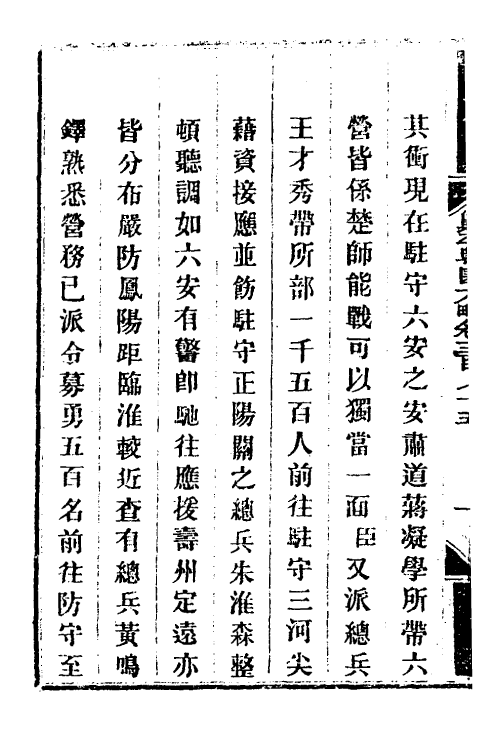 其衝現在駐守六安之安肅道蔣凝學所帶六
營皆係楚師能戰可以獨當一面臣又派總兵
王才秀帶所部一千五百人前往駐守三河尖
藉資接應並飭駐守正陽關之總兵朱淮森整
頓聽調如六安有警卽馳往應援壽州定遠亦
皆分布嚴防鳳陽距臨淮較近查有總兵黃鳴
鐸熟悉營務已派令募勇五百名前往防守至